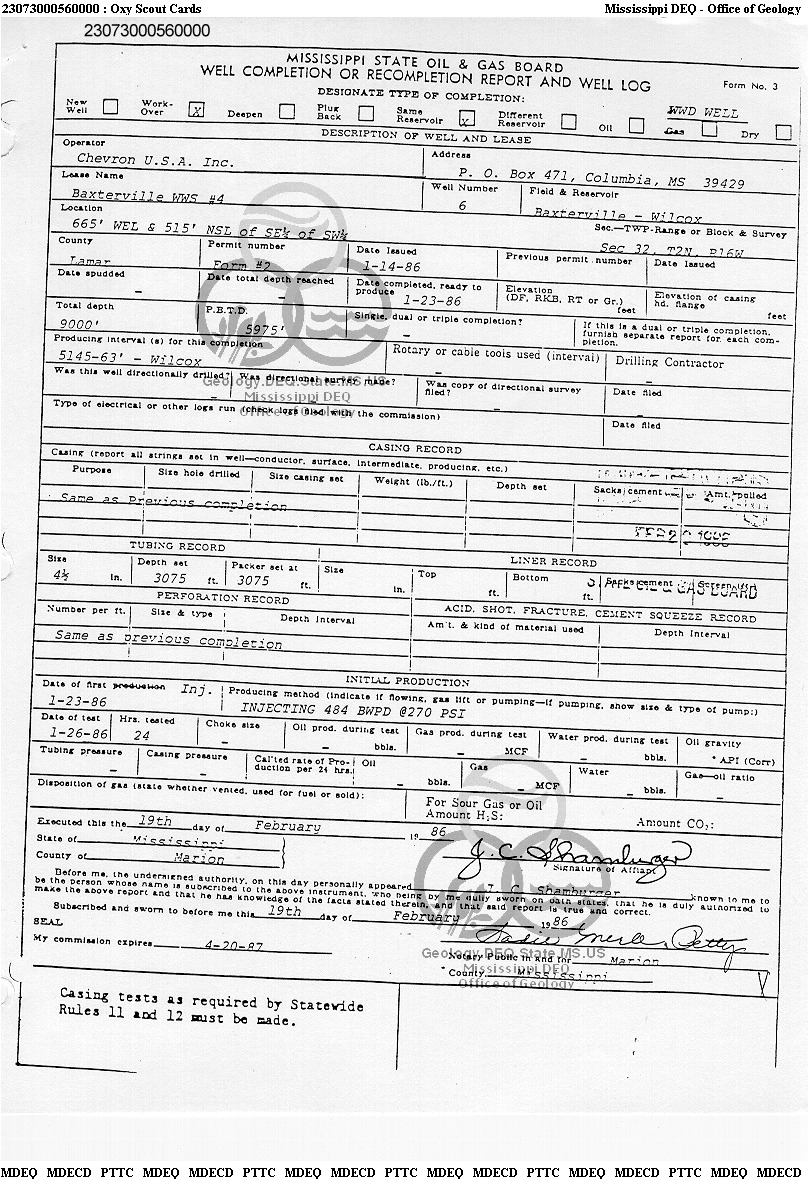 23073000560000 : Oxy Scout Cards Mississippi DEQ - Office of Geology
23073000560000
MISSISSIPPI STATE OIL & GAS BOARD
WELL COMPLETION OR RECOMPLETION REPORT AND WELL LOG Form No. 3
DESIGNATE TYPE OF COMPLETION:
New Well Work-Over X Deepen Plug Back Same Reservoir X Different Reservoir Oil WWD WELL Gas Dry
DESCRIPTION OF WELL AND LEASE
Operator Address
Chevron U.S.A. Inc. P. O. Box 471, Columbia, MS 39429
Lease Name Well Number Field & Reservoir
Baxterville WWS #4 6 Baxterville - Wilcox
Location Sec.—TWP-Range or Block & Survey
665' WEL & 515' NSL of SE¼ of SW¼ Sec 32, T2N, R16W
County Permit number Date Issued Previous permit number Date Issued
Lamar Form #2 1-14-86
Date spudded Date total depth reached Date completed, ready to produce Elevation (DF, RKB, RT or Gr.) Elevation of casing hd. flange
- - 1-23-86 feet feet
Total depth P.B.T.D. Single, dual or triple completion? If this is a dual or triple completion, furnish separate report for each completion.
9000' 5975' -
Producing interval (s) for this completion Rotary or cable tools used (interval) Drilling Contractor
5145-63' - Wilcox - -
Was this well directionally drilled? Was directional survey made? Was copy of directional survey filed? Date filed
Geology.DEQ.State.MS.US
Mississippi DEQ
Office of Geology
Type of electrical or other logs run (check logs filed with the commission) Date filed
CASING RECORD
Casing (report all strings set in well—conductor, surface, intermediate, producing, etc.)
Purpose Size hole drilled Size casing set Weight (lb./ft.) Depth set Sacks cement Amt. pulled
Same as previous completion
TUBING RECORD LINER RECORD
Size Depth set Packer set at Size Top Bottom Sacks cement Screen
4½ in. 3075 ft. 3075 ft. in. ft. ft.
OIL & GAS BOARD
PERFORATION RECORD ACID, SHOT, FRACTURE, CEMENT SQUEEZE RECORD
Number per ft. Size & type Depth Interval Am't. & kind of material used Depth Interval
Same as previous completion
INITIAL PRODUCTION
Date of first production Inj. Producing method (indicate if flowing, gas lift or pumping—if pumping, show size & type of pump:)
1-23-86 INJECTING 484 BWPD @270 PSI
Date of test Hrs. tested Choke size Oil prod. during test Gas prod. during test Water prod. during test Oil gravity
1-26-86 24 - - bbls. - MCF - bbls. ° API (Corr)
Tubing pressure Casing pressure Cal'ted rate of Production per 24 hrs. Oil Gas Water Gas—oil ratio
- - - bbls. - MCF - bbls. -
Disposition of gas (state whether vented, used for fuel or sold): For Sour Gas or Oil
Amount H₂S: Amount CO₂:
Executed this the 19th day of February 19 86
State of Mississippi J. C. Shamburger
County of Marion Signature of Affiant
Before me, the undersigned authority, on this day personally appeared J. C. Shamburger known to me to
be the person whose name is subscribed to the above instrument, who being by me duly sworn on oath states, that he is duly authorized to
make the above report and that he has knowledge of the facts stated therein, and that said report is true and correct.
Subscribed and sworn to before me this 19th day of February 1986
SEAL
My commission expires 4-20-87
Notary Public in and for Marion
County, Mississippi
Geology.DEQ.State.MS.US
Mississippi DEQ
Office of Geology
Casing tests as required by Statewide
Rules 11 and 12 must be made.
MDEQ MDECD PTTC MDEQ MDECD PTTC MDEQ MDECD PTTC MDEQ MDECD PTTC MDEQ MDECD PTTC MDEQ MDECD